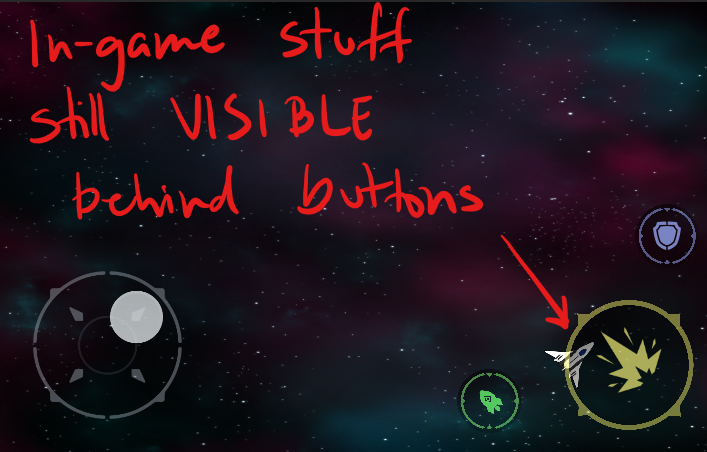 In-game stuff
still VISIBLE
behind buttons